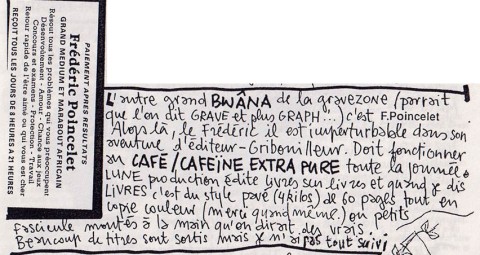 PAIEMENT APRES RESULTATS
Frédéric Poincelet
GRAND MEDIUM ET MARABOUT AFRICAIN
Résout tous les problèmes qui vous préoccupent
Désenvoûtement - Amour - Chance aux jeux
Concours et examens - Protection - Travail
Retour rapide de l'être aimé ou qui vous est cher
REÇOIT TOUS LES JOURS DE 8 HEURES A 21 HEURES
L'autre grand BWÂNA de la gravezone (parrait
que l'on dit GRAVE et plus GRAPH...) c'est F.Poincelet
Alors là, le Frédéric il est imperturbable dans son
aventure d'éditeur-Gribouilleur. Doit fonctionner
au CAFÉ/CAFEÏNE EXTRA PURE toute la journée.
LUNE production édite livres sur livres et quand je dis
LIVRES c'est du style pavé (4kilos) de 60 pages tout en
copie couleur (merci quand même.) ou petits
Fascicule montés à la main qu'on dirait des vrais.
Beaucoup de titres sont sortis mais j' n'ai pas tout suivi